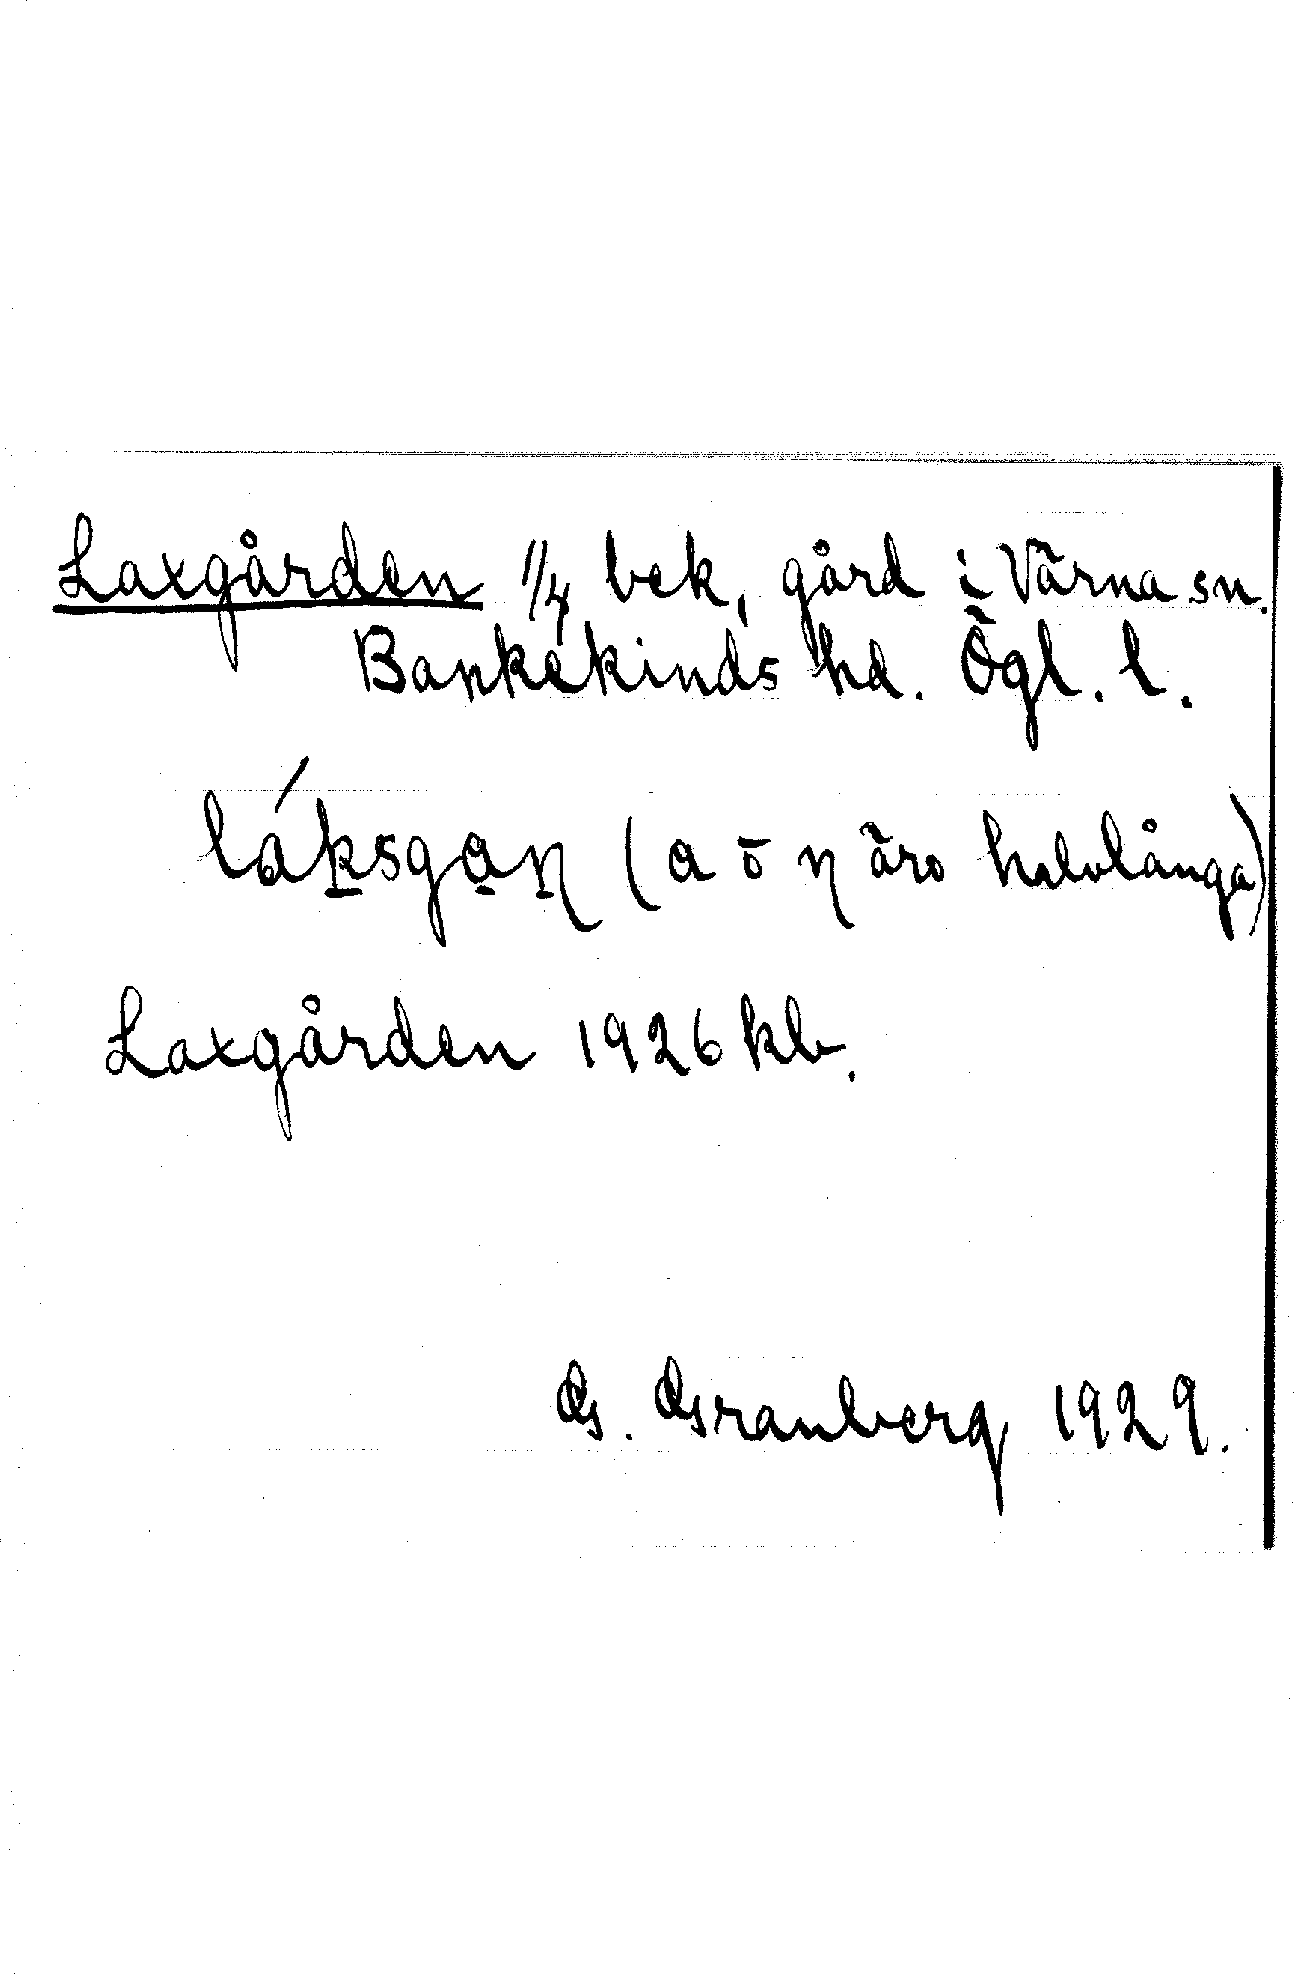 Laxgården 1/4 bek, gård i Värna sn.
Bankekinds hd. Ögl. l.
láksgaɳ (a o ɳ äro halvlånga)
Laxgården 1926 kb.
G. Granberg 1929.